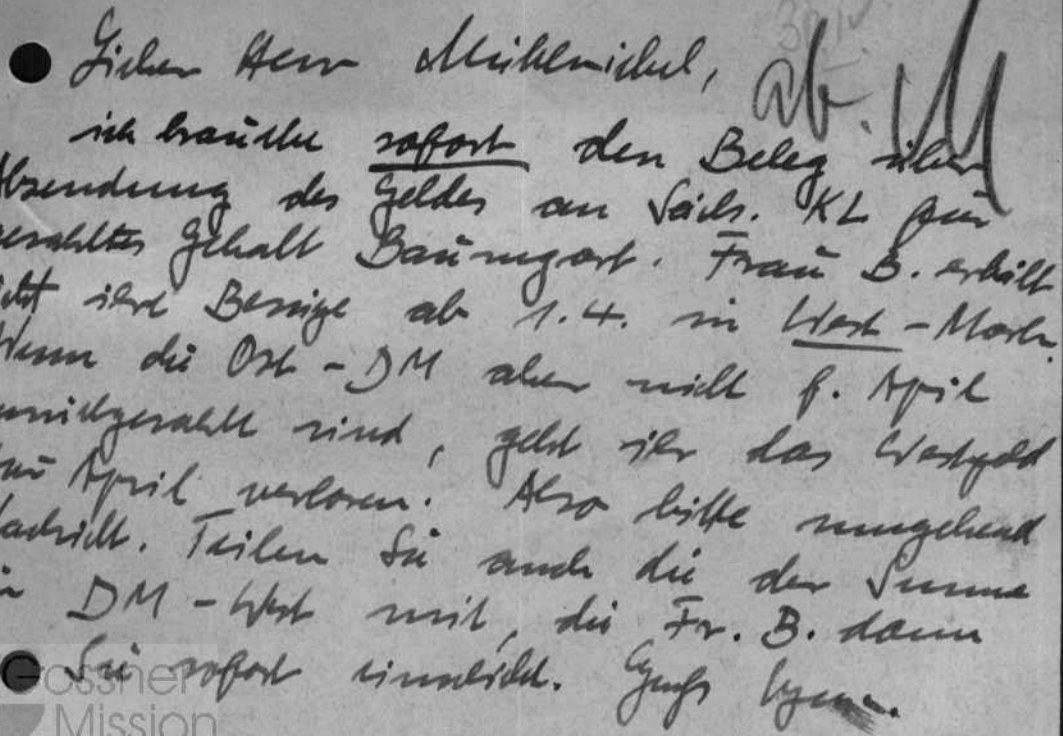 Lieber Herr Mühlnickel,
ich brauche sofort den Beleg über
Absendung des Geldes an Sächs. KL für
gezahltes Gehalt Baumgart. Frau B. erhält
jetzt ihre Bezüge ab 1.4. in West-Mark.
Wenn die Ost-DM aber nicht f. April
zurückgezahlt sind, geht ihr das Westgeld
für April verloren. Also bitte umgehend
Nachricht. Teilen Sie auch die der Summe
in DM-West mit, die Fr. B. dann
Sie sofort einschickt. Gruß
Gossner
Mission